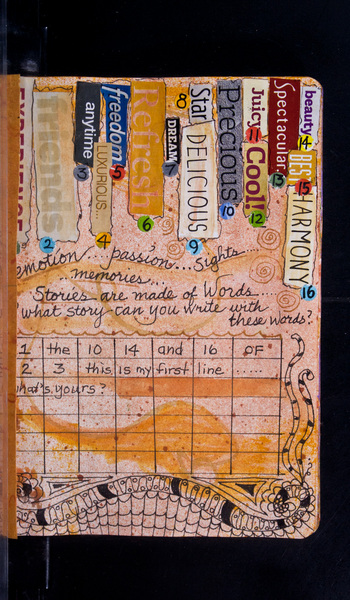 EXPERIENCE
friends
2
anytime
3
LUXURIOUS...
4
freedom
5
Refresh
6
DREAM
7
8
Star
DELICIOUS
9
Precious
10
Juicy
11
Cool!
12
Spectacular
13
beauty
14
BEST
15
HARMONY
16
emotion... passion... Sights....
...memories....
Stories are made of Words....
what story can you write with
these words?
1 the 10 14 and 16 OF
2 3 this is my first line .....
what's yours?